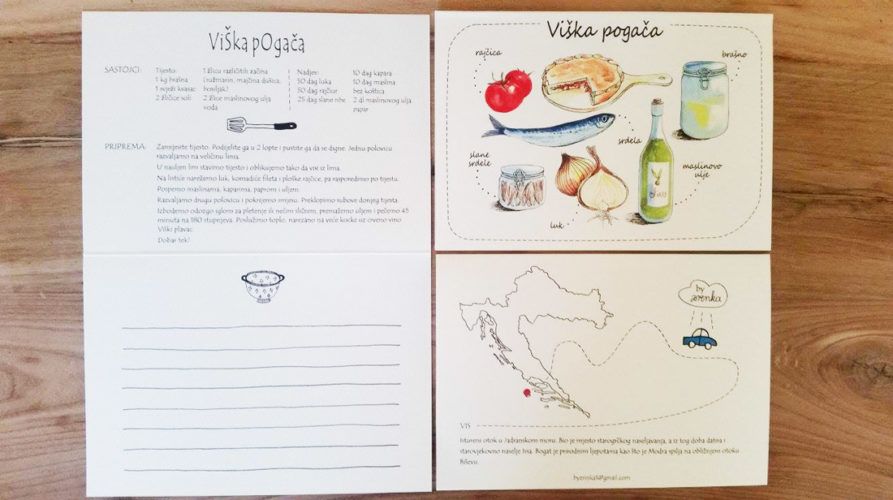 Viška pogača
SASTOJCI:
Tijesto:
1 kg brašna
1 svježi kvasac
2 žličice soli
1 žlica različitih začina
(ružmarin, majčina dušica,
bosiljak)
2 žlice maslinovog ulja
voda
Nadjev:
50 dag luka
50 dag rajčice
25 dag slane ribe
10 dag kapara
10 dag maslina
bez koštica
2 dl maslinovog ulja
papar
PRIPREMA:
Zamijesite tijesto. Podijelite ga u 2 lopte i pustite ga da se digne. Jednu polovicu
razvaljamo na veličinu lima.
U nauljen lim stavimo tijesto i oblikujemo tako da viri iz lima.
Na listiće narežemo luk, komadiće fileta i ploške rajčice, pa rasporedimo po tijestu.
Pospemo maslinama, kaparima, paprom i uljem.
Razvaljamo drugu polovicu i pokrijemo smjesu. Preklopimo rubove donjeg tijesta.
Izbodemo odozgo iglom za pletenje ili nečim sličnim, premažemo uljem i pečemo 45
minuta na 180 stupnjeva. Poslužimo toplo, narezano na veće kocke uz crveno vino
Viški plavac.
Dobar tek!
Viška pogača
rajčica
brašno
srdela
slane
srdele
maslinovo
ulje
luk
by
zrenka
VIS
Istureni otok u Jadranskom moru. Bio je mjesto starogrčkog naseljavanja, a iz tog doba datira i
starovjekovno naselje Issa. Bogat je prirodnim ljepotama kao što je Modra spilja na obližnjem otoku
Biševu.